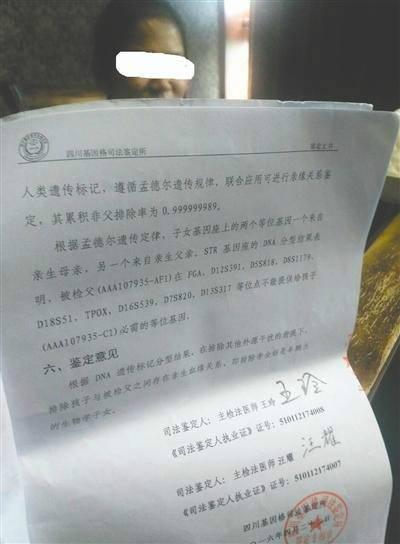 四川基因格司法鉴定所
鉴定文书
人类遗传标记，遵循孟德尔遗传规律，联合应用可进行亲缘关系鉴
定，其累积非父排除率为 0.999999989。
根据孟德尔遗传定律，子女基因座上的两个等位基因一个来自
亲生母亲，另一个来自亲生父亲，STR 基因座的 DNA 分型结果表
明，被检父(AAA107935-AF1)在 FGA、D12S391、D5S818、D8S1179、
D18S51、TPOX、D16S539、D7S820、D13S317 等位点不能提供给孩子
(AAA107935-C1)必需的等位基因。
六、鉴定意见
根据 DNA 遗传标记分型结果，在排除其他外源干扰的前提下，
排除孩子与被检父之间存在亲生血缘关系，即排除
的生物学子女。
司法鉴定人：主检法医师 王玲
王玲
《司法鉴定人执业证》证号：510112174008
司法鉴定人：主检法医师 汪耀
汪耀
《司法鉴定人执业证》证号：510112174007
四川基因格司法鉴定所
一六年四月二十